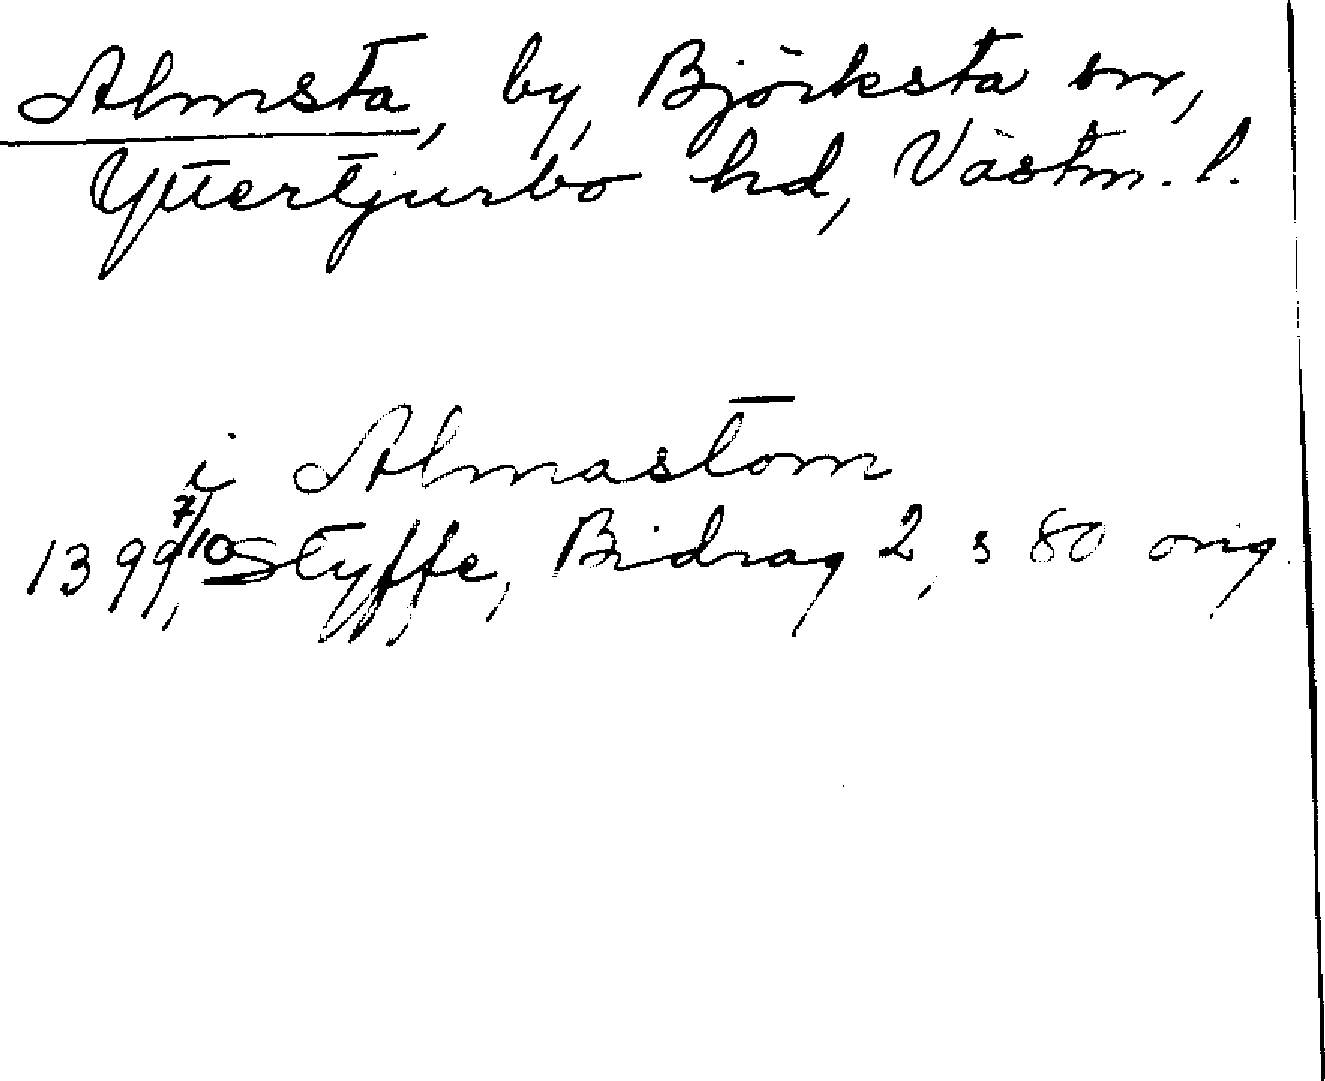 Almsta, by, Björksta sn,
Yttertjurbo hd, Västm. l.
i Almastom
1399 7/10, Styffe, Bidrag 2, s 80 orig.